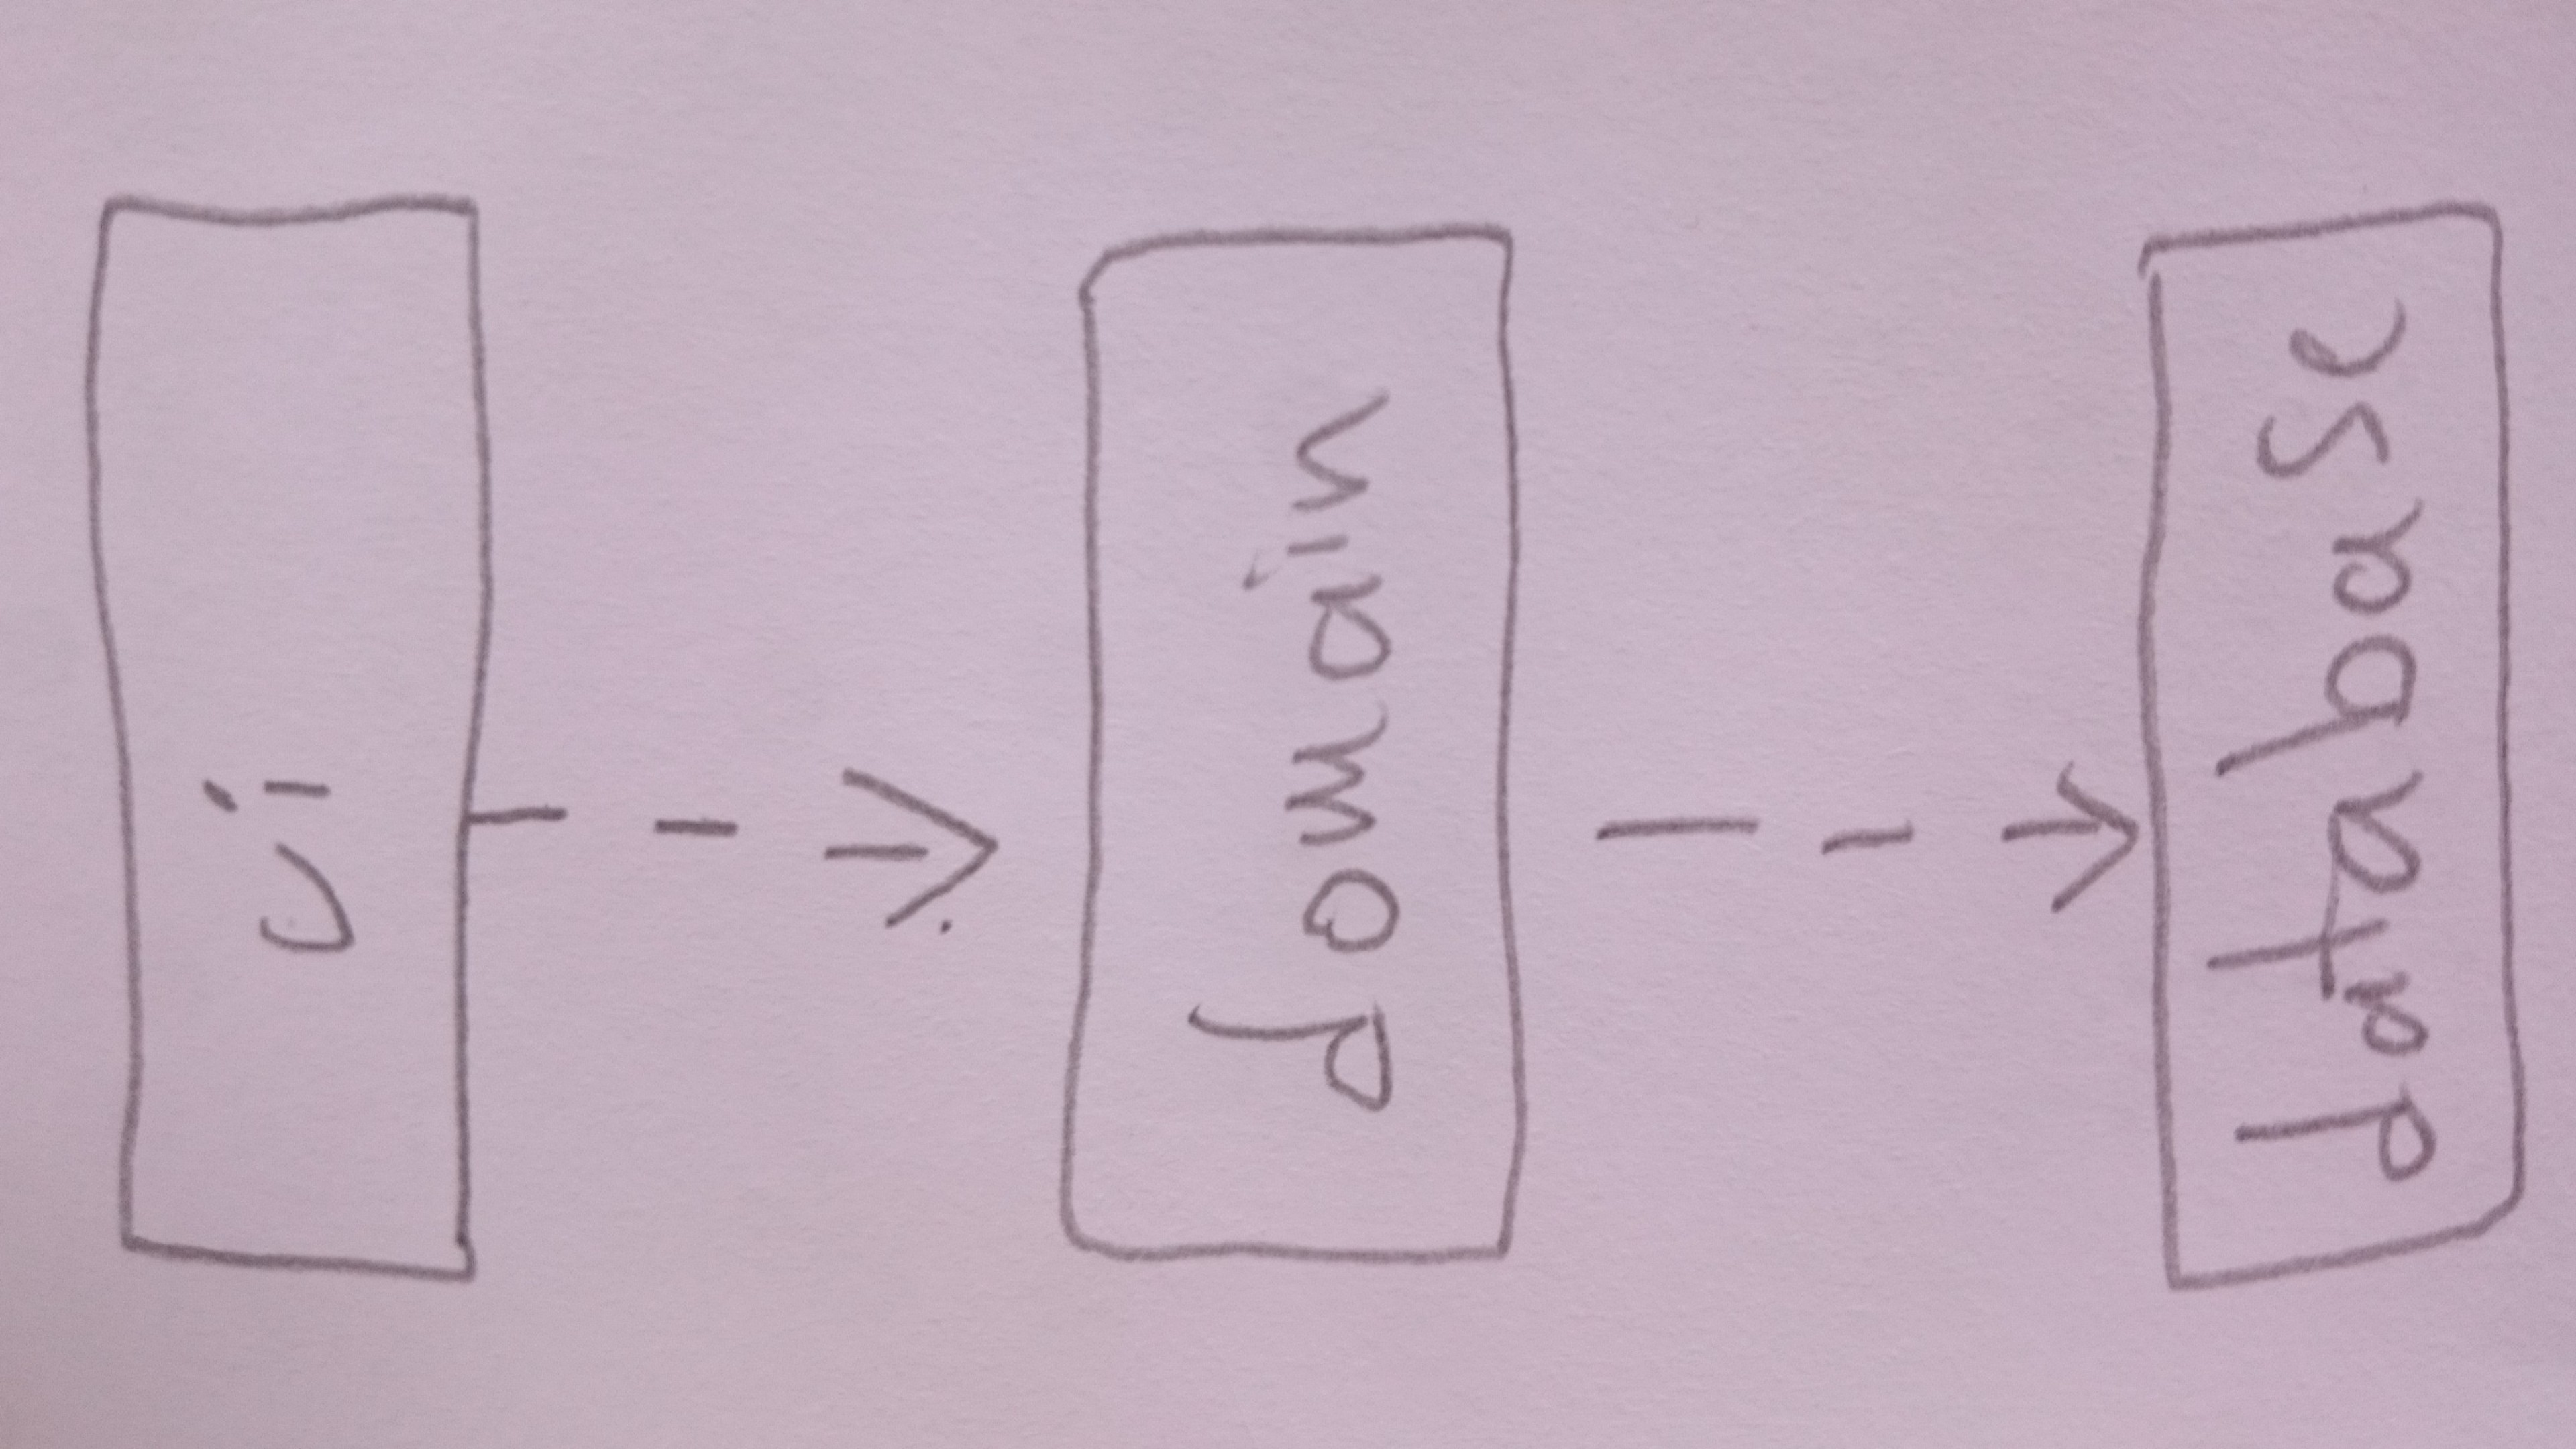 ui
domain
database